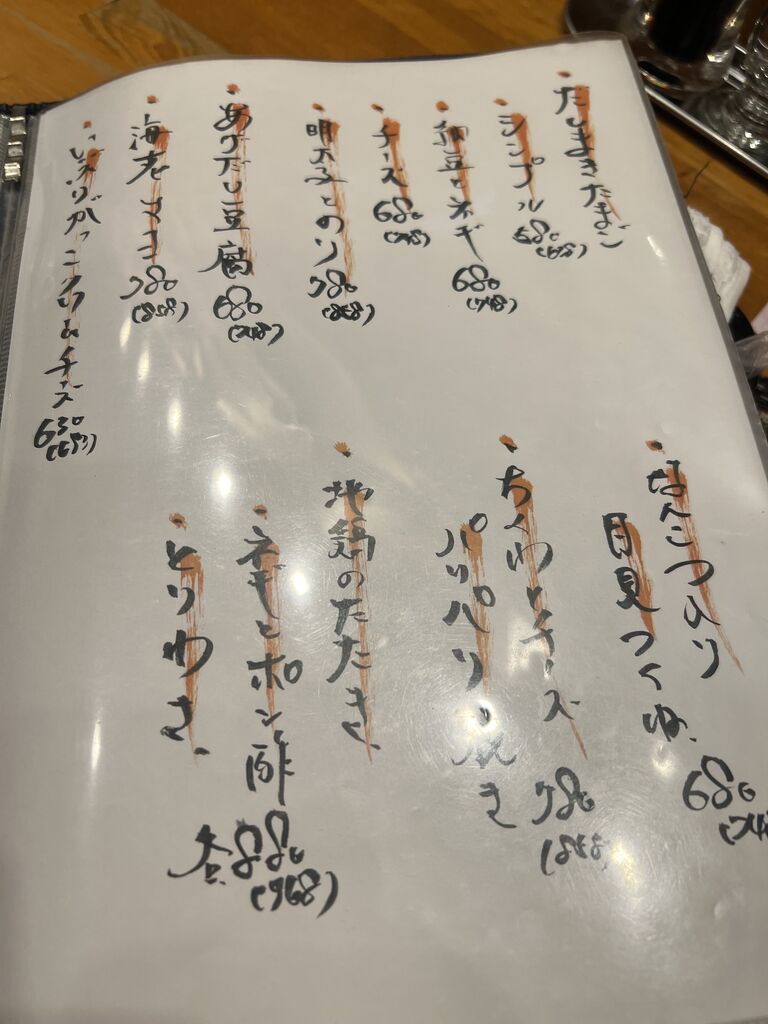 だしまきたまご
シンプル 580 (638)
納豆とネギ 680 (748)
チーズ 680 (748)
明太子とのり 780 (858)
あげだし豆腐 680 (748)
海老マヨ 780 (858)
いぶりがっこクリームチーズ 630 (693)
なんこつ入り
月見つくね 680
ちくわとチーズ
パリパリ焼き 780 (858)
地鶏のたたき
ネギとポン酢
とりわさ
各880 (968)